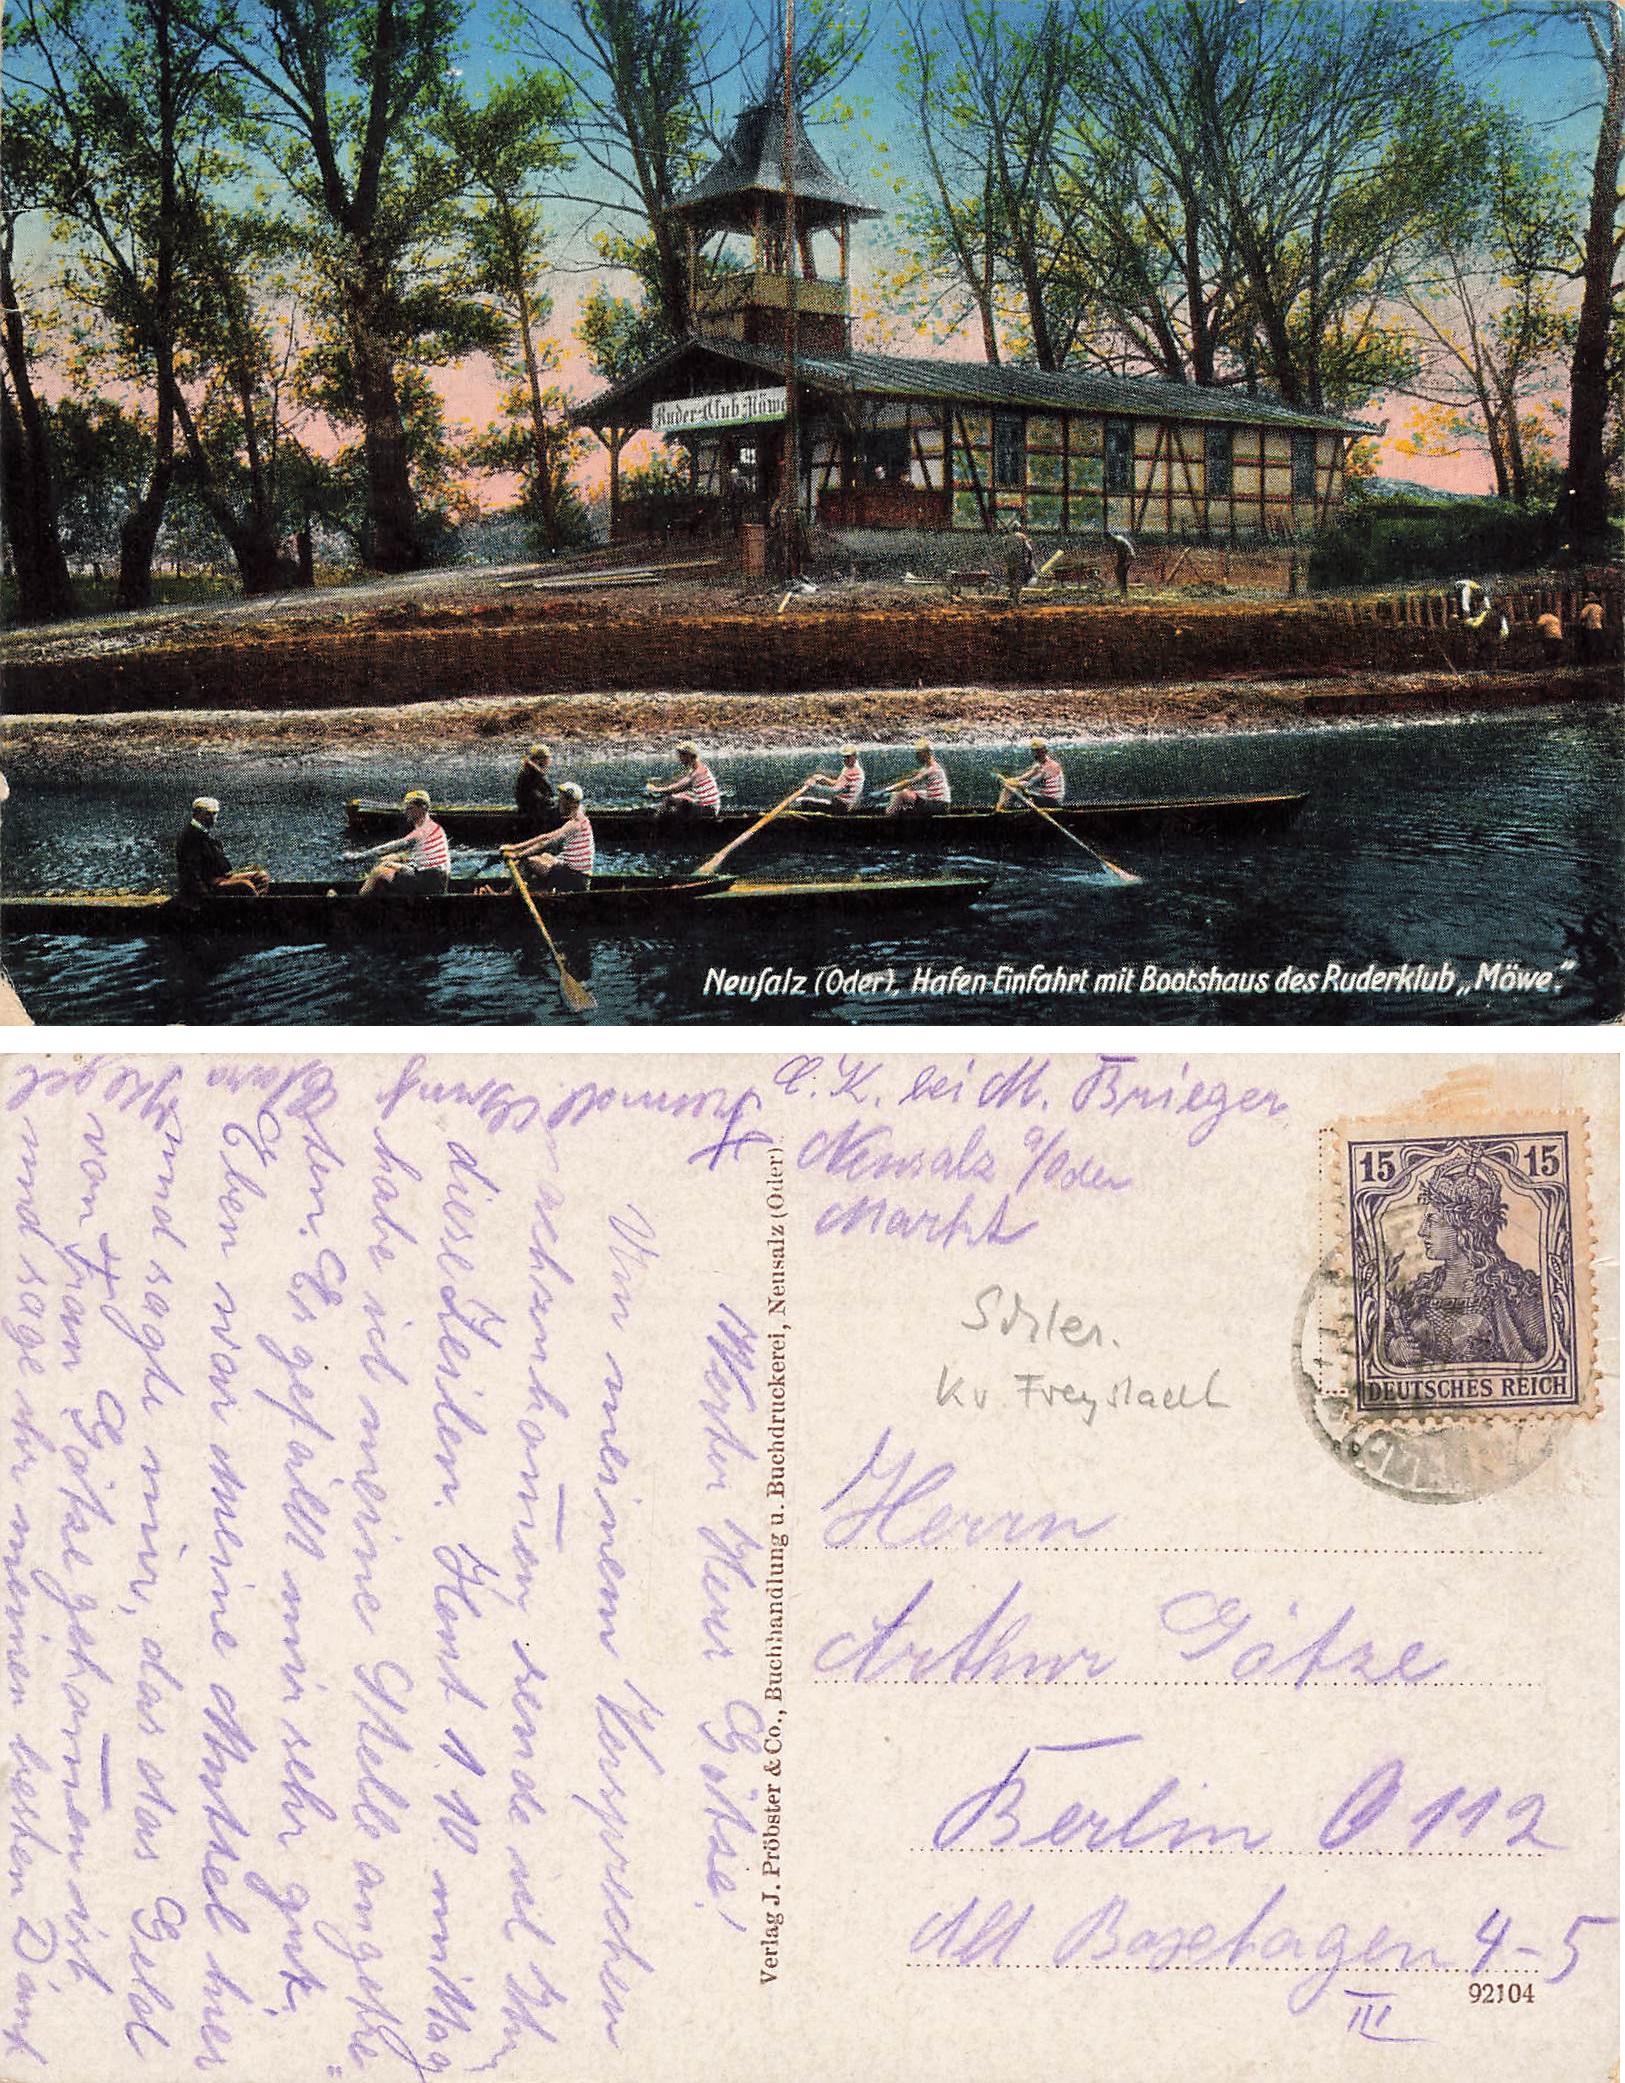 Ruder-Club Möwe
Neusalz (Oder), Hafen-Einfahrt mit Bootshaus des Ruderklub „Möwe."
C. K. bei M. Brieger
Neusalz a/Oder
Markt
15 15
DEUTSCHES REICH
Schles.
Kr Freystadt
Herrn
Arthur Götze
Berlin O 112
Alt Boxhagen 4-5
III
92104
Verlag J. Pröbster & Co., Buchhandlung u. Buchdruckerei, Neusalz (Oder)
Werter Herr Götze!
Um meinem Versprechen
nachzukom̅en sende ich Ihn
diese Zeilen. Konnt 1.10. mittag
habe ich meine Stelle angetre"
ten. Es gefällt mir sehr gut.
Eben war meine Muttel hier
und sagte mir, das das Geld
von Frau Götze gekom̅en ist
und sage ihr meinen besten Dank
Freundl Gruß
Clara Kegel